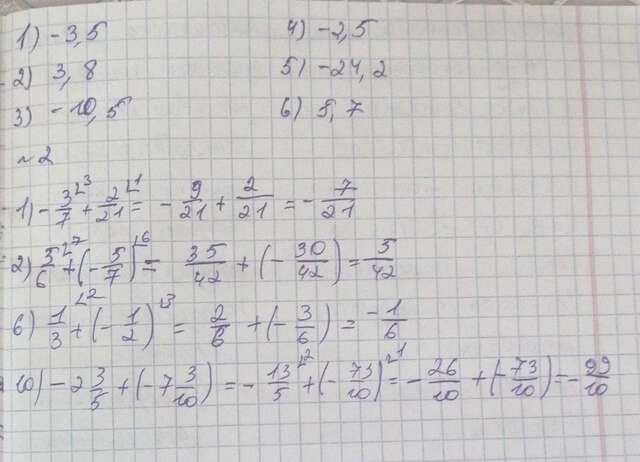 1) -3,5 4) -2,5
2) 3,8 5) -24,2
3) -10,5 6) 5,7
~2
1) -3/7 ∟3 + 2/21 ∟1 = -9/21 + 2/21 = -7/21
2) 5/6 ∟7 + (-5/7) ∟6 = 35/42 + (-30/42) = 5/42
6) 1/3 ∟2 + (-1/2) ∟3 = 2/6 + (-3/6) = -1/6
10) -2 3/5 + (-7 3/10) = -13/5 ∟2 + (-73/10) ∟1 = -26/10 + (-73/10) = -99/10